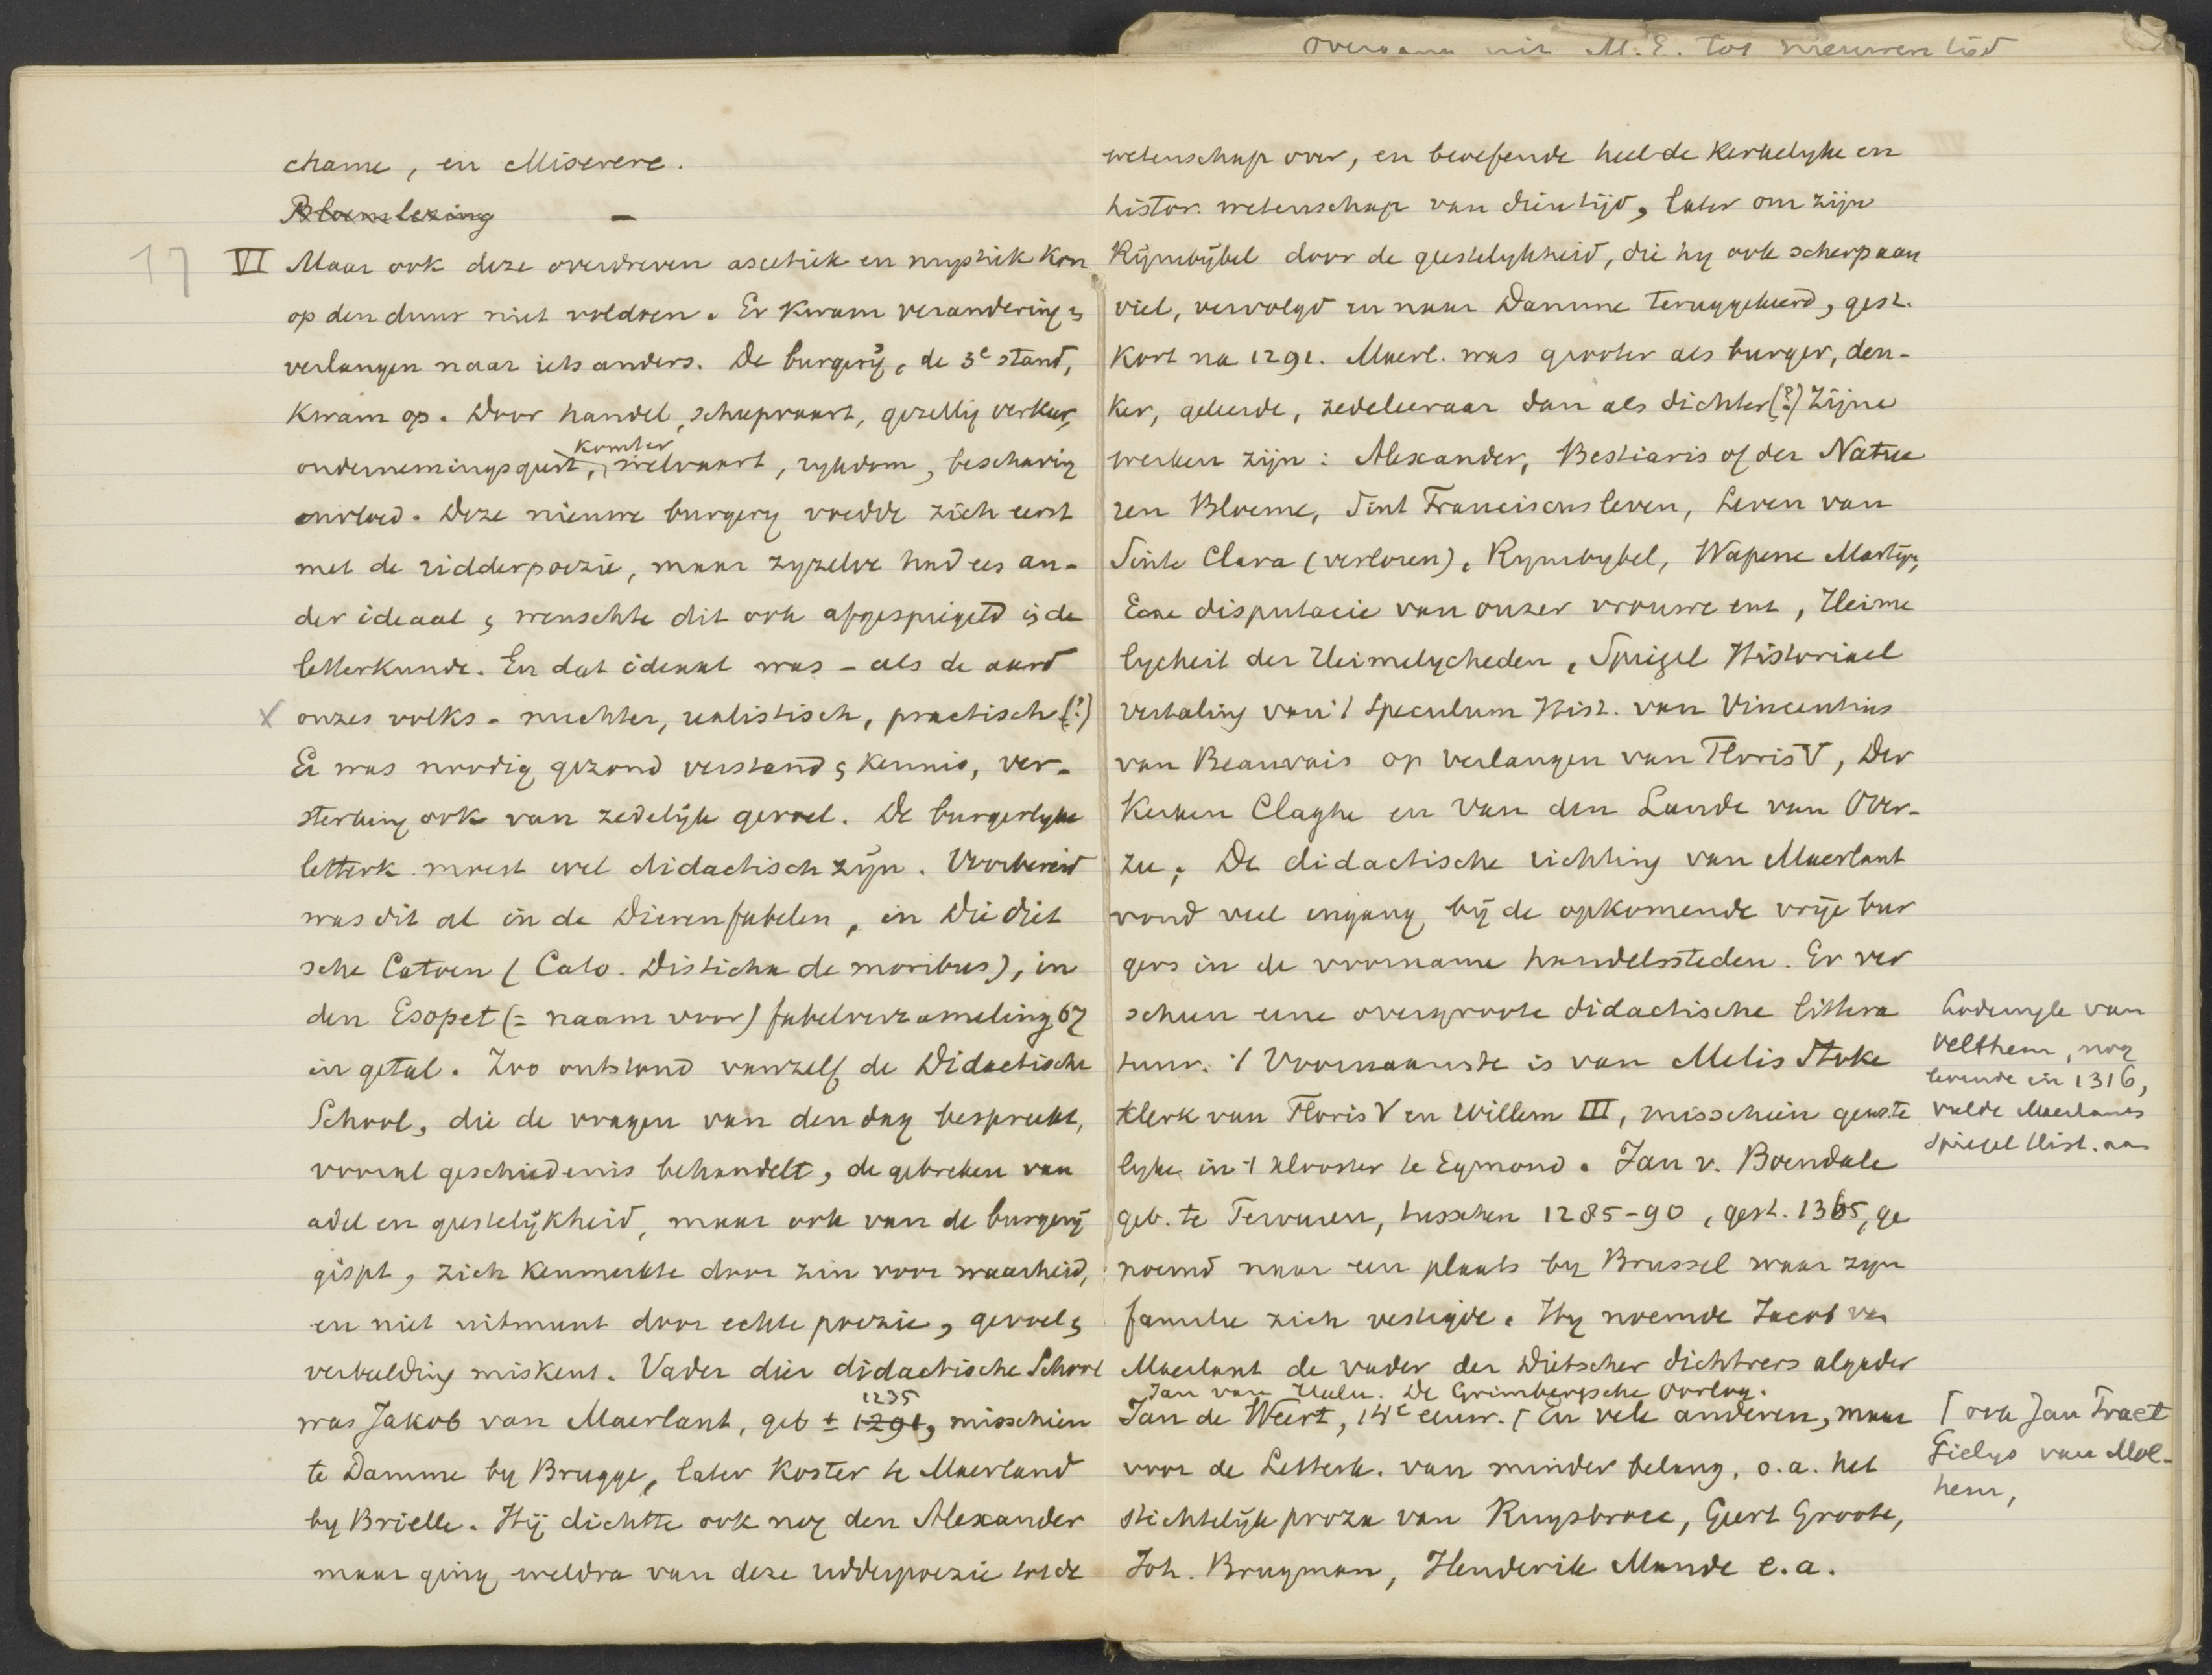 overgang uit M.E. tot nieuwen tijd
chame, en Miserere.
Bloemlezing —
17 VI Maar ook deze overdreven ascetiek en mystiek kon
op den duur niet voldoen. Er kwam verandering &
verlangen naar iets anders. De burgerij, de 3e stand,
kwam op. Door handel, scheepvaart, gezellig verkeer,
komter
ondernemingsgeest, welvaart, rykdom, beschaving
invloed. Deze nieuwe burgery voedde zich eerst
met de ridderpoezie, maar zyzelve had ees an-
der ideaal & wenschte dit ook afgespiegeld i/d de
letterkunde. En dat ideaal was – als de aard
x onzes volks – nuchter, realistisch, practisch (?)
Er was noodig gezond verstand & kennis, ver-
sterking ook van zedelijk gevoel. De burgerlyke
letterk. moest wel didactisch zijn. Voorbereid
was dit al in de Dierenfabelen, in Die diet
sche Catoen (Cato. Disticha de moribus), in
den Esopet (= naam voor) fabelverzameling 67
in getal. Zoo ontstond vanzelf de Didactische
School, die de vragen van den dag bespreekt,
vooral geschiedenis behandelt, de gebreken van
adel en geestelijkheid, maar ook van de burgerij
gispt, zich kenmerkte door zin voor waarheid,
en niet uitmunt door echte poezie, gevoel &
verbeelding miskent. Vader dier didactische School
1235
was Jakob van Maerlant, geb ± 1291, misschien
te Damme by Brugge, later koster te Maerland
by Brielle. Hij dichtte ook nog den Alexander
maar ging weldra van deze ridderpoezie tot de
wetenschap over, en beoefende heel de kerkelyke en
histor. wetenschap van dien tijd, later om zijn
Rijmbijbel door de geestelykheid, die hy ook scherp aan
viel, vervolgd en naar Damme teruggekeerd, gest.
kort na 1291. Maerl. was grooter als burger, den-
ker, geleerde, zedeleeraar dan als dichter (?) Zijne
werken zijn: Alexander, Bestiaris of der Natue
ren Bloeme, Sint Franciscus leven, Leven van
Sinte Clara (verloren), Rymbybel, Wapene Martijn,
Eene disputacie van onser vrouwe ent, Heime
lycheit der Heimelycheden, Spiegel Historiael
vertaling van 't Speculum Hist. van Vincentius
van Beauvais op verlangen van Floris V, Der
Kerken Claghe en Van den Lande van Over-
zee. De didactische richting van Maerlant
vond veel ingang bij de opkomende vrije bur
gers in de voorname handelssteden. Er ver
scheen eene overgroote didactische littera
tuur. 't Voornaamste is van Melis Stoke
klerk van Floris V en Willem III, misschien geeste
lyke in 't klooster te Egmond. Jan v. Boendale
geb. te Tervuren, tusschen 1285-90, gest. 1365, ge
noemd naar een plaats by Brussel waar zyn
familie zich vestigde. Hy noemde Jacob van
Maerlant de vader der Dietscher dichtrers algader
Jan van Heelu. De Grimbergsche Oorlog.
Jan de Weert, 14e eeuw. ⌈ En vele anderen, maar
voor de Letterk. van minder belang, o.a. het
stichtelijk proza van Ruysbroec, Geert Groote,
Joh. Brugman, Henderik Mande e.a.
Lodewyk van
Velthem, nog
levende in 1316,
vulde Maerlants
Spiegel Hist. aan
⌈ ook Jan Praet
Gielys van Mol-
hem,